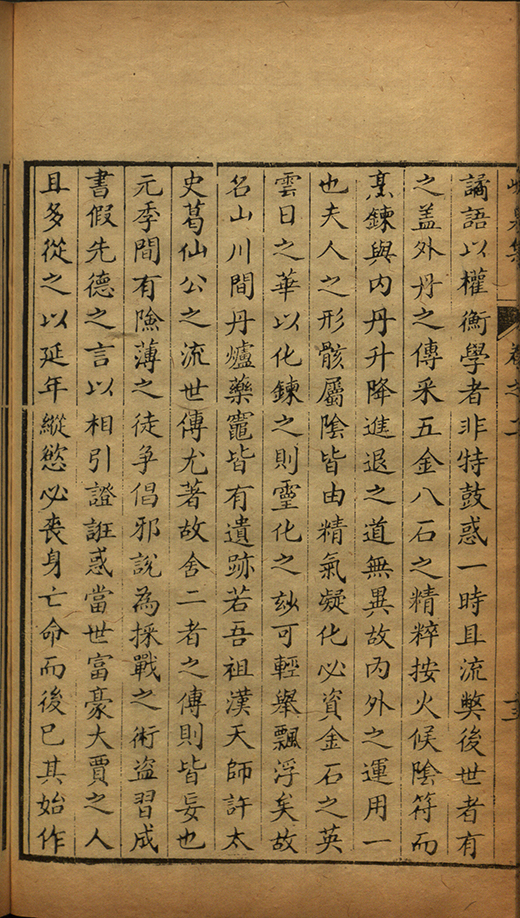 譎語以權衡學者非特鼓惑一時且流獘後世者有
之盖外丹之傳采五金八石之精粹按火候陰符而
烹鍊與内丹升降進退之道無異故内外之運用一
也夫人之形骸屬陰皆由精氣凝化必資金石之英
雲日之華以化鍊之則靈化之玅可輕舉飄浮矣故
名山川間丹爐藥竈皆有遺跡若吾祖漢天師許太
史葛仙公之流世傳尤著故舍二者之傳則皆妄也
元季間有隂薄之徒爭倡邪說為採戰之術盜習成
書假先德之言以相引證誑惑當世富豪大賈之人
且多從之以延年縱慾必喪身亡命而後已其始作